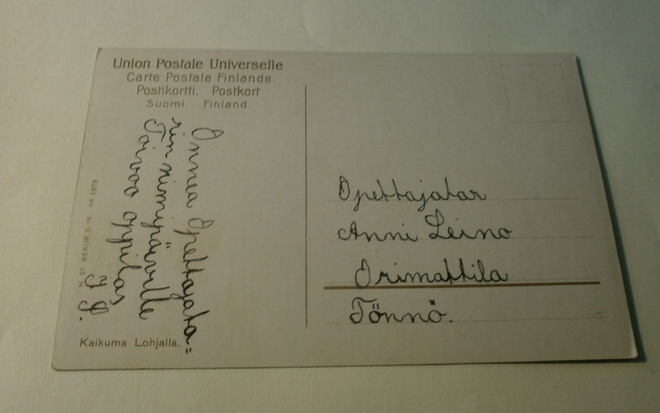 Union Postale Universelle
Carte Postale Finlande.
Postikortti. Postkort
Suomi Finland.
Onnea Opettajata=
rin nimipäivälle
Toivoo oppilas
J S.
Kaikuma Lohjalla.
Opettajatar
Anni Leino
Orimattila
Tönnö.